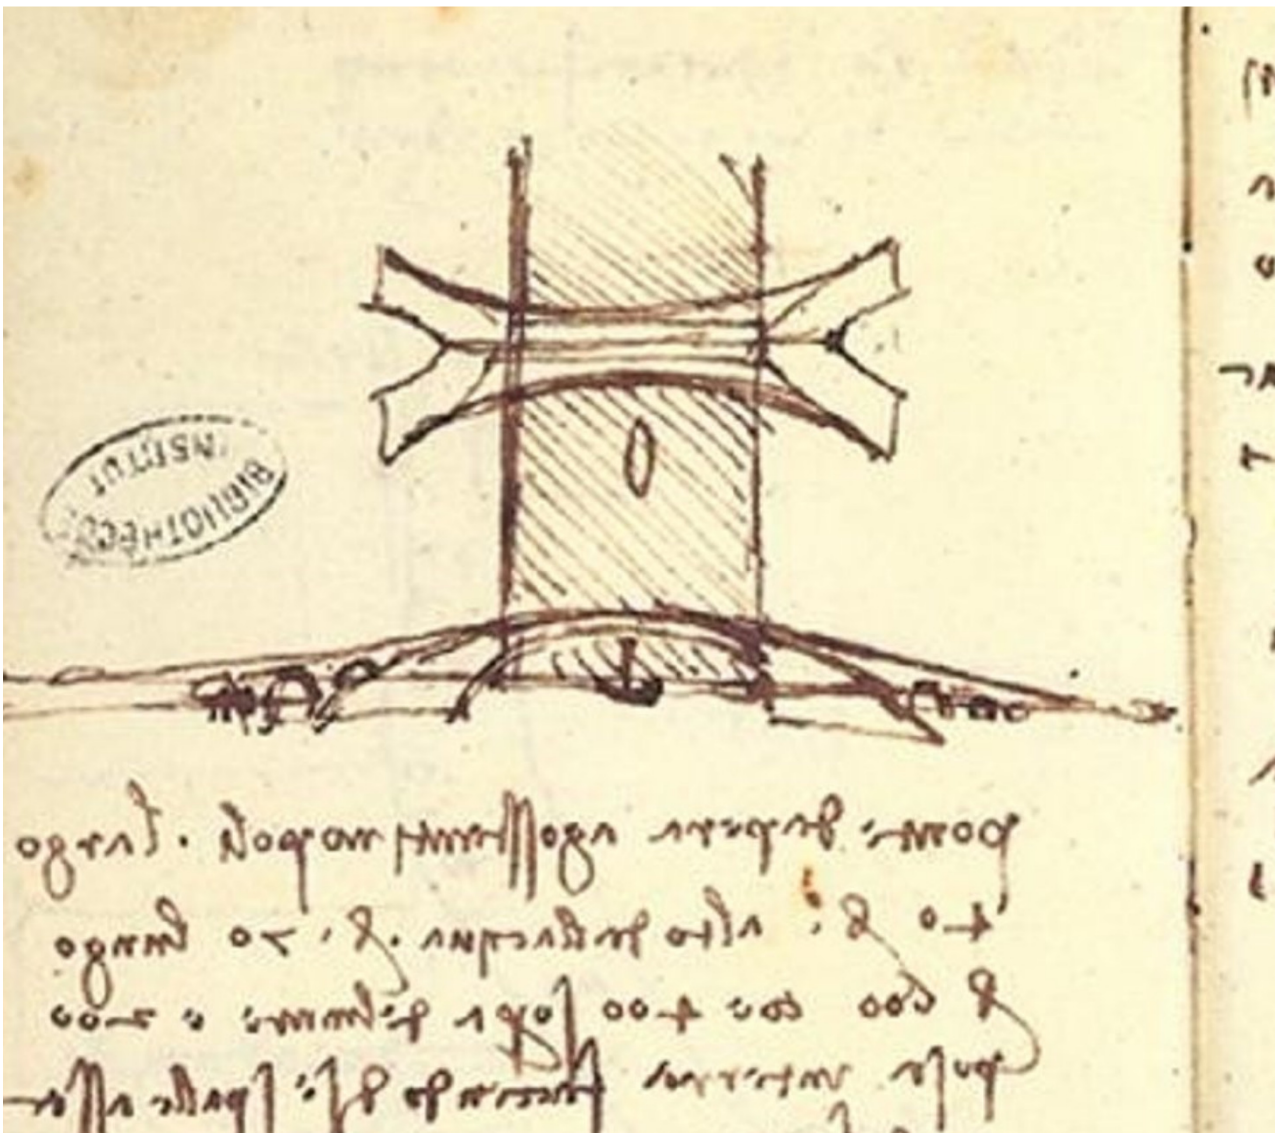 BIBLIOTHEC
INSTITUT
ponte da pera a gosstantinopoli . largo
40 br alto dallacqua br 70 lungo
br 600 cioe 400 sopra del mare e 200
posa in terra faccendo di se spalle asse